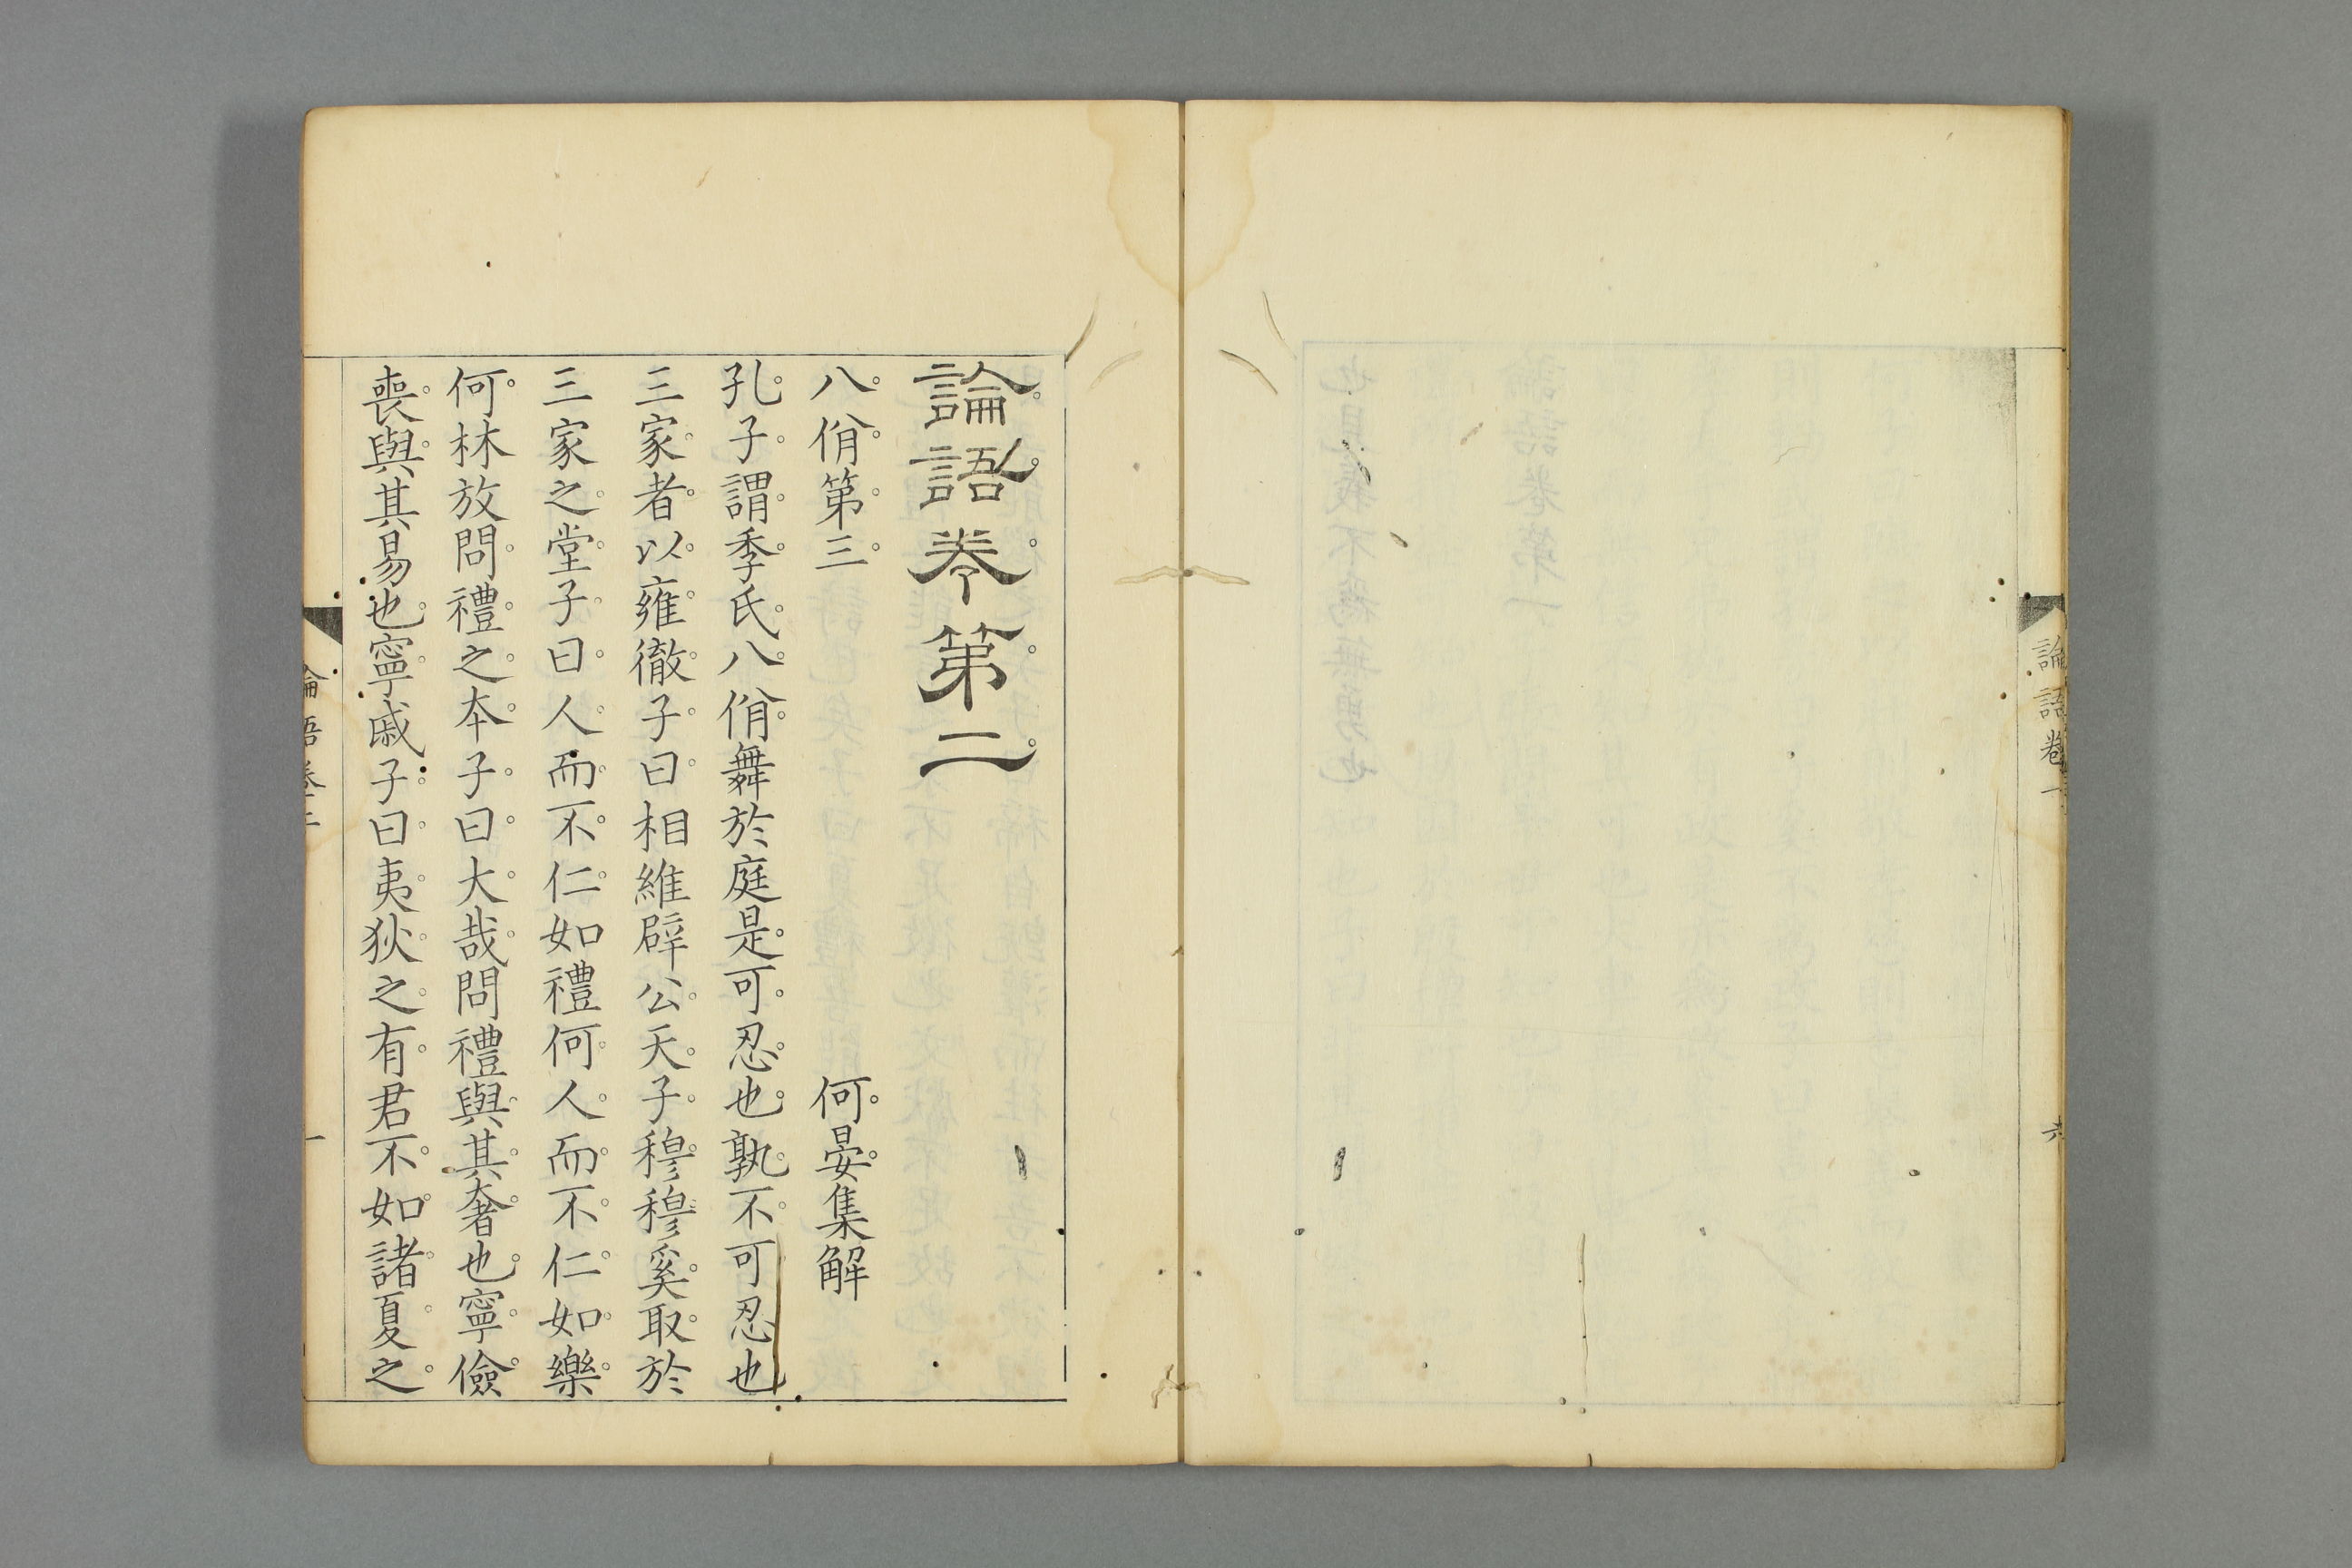 論語卷一
六
論語卷第二
八佾第三
何晏集解
孔子謂季氏八佾舞於庭是可忍也孰不可忍也
三家者以雍徹子曰相維辟公天子穆穆奚取於
三家之堂子曰人而不仁如禮何人而不仁如樂
何林放問禮之本子曰大哉問禮與其奢也寧儉
喪與其易也寧戚子曰夷狄之有君不如諸夏之
論語卷二
一